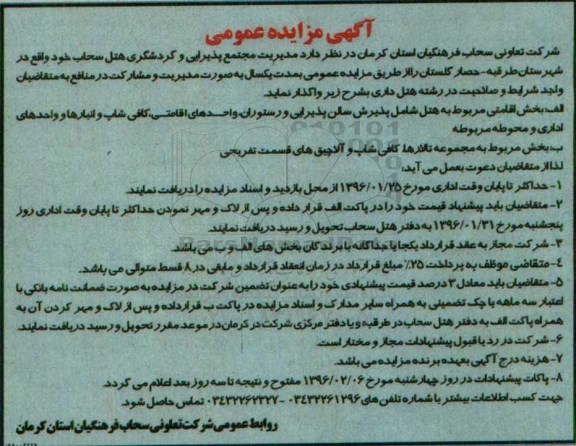 آگهی مزایده عمومی
شرکت تعاونی سحاب فرهنگیان استان کرمان در نظر دارد مدیریت مجتمع پذیرایی و گردشگری هتل سحاب خود واقع در
شهرستان طرقبه- حصار گلستان رااز طریق مزایده عمومی بمدت یکسال به صورت مدیریت و مشارکت در منافع به متقاضیان
واجد شرایط و صلاحیت در رشته هتل داری بشرح زیر واگذار نماید.
الف: بخش اقامتی مربوط به هتل شامل پذیرش سالن پذیرایی و رستوران، واحدهای اقامتی، کافی شاپ و انبارها و واحدهای
اداری و محوطه مربوطه
ب: بخش مربوط به مجموعه تالارها، کافی شاپ و آلاچیق های قسمت تفریحی
لذا از متقاضیان دعوت بعمل می آید:
۱- حداکثر تا پایان وقت اداری مورخ ۱۳۹۶/۰۱/۲۵ از محل بازدید و اسناد مزایده را دریافت نمایند.
۲- متقاضیان باید پیشنهاد قیمت خود را در پاکت الف قرار داده و پس از لاک و مهر نمودن حداکثر تا پایان وقت اداری روز
پنجشنبه مورخ ۱۳۹۶/۰۱/۳۱ به دفتر هتل سحاب تحویل و رسید دریافت نمایند.
۳- شرکت مجاز به عقد قرارداد یکجا یا جداگانه با برندگان بخش های الف و ب می باشد.
۴- متقاضی موظف به پرداخت ۲۵٪ مبلغ قرارداد در زمان انعقاد قرارداد و مابقی در ۸ قسط متوالی می باشد.
۵- متقاضیان باید معادل ۳ درصد قیمت پیشنهادی خود را به عنوان تضمین شرکت در مزایده به صورت ضمانت نامه بانکی با
اعتبار سه ماهه یا چک تضمینی به همراه سایر مدارک و اسناد مزایده در پاکت ب قرارداده و پس از لاک و مهر کردن آن به
همراه پاکت الف به دفتر هتل سحاب در طرقبه و یا دفتر مرکزی شرکت در کرمان در موعد مقرر تحویل و رسید دریافت نمایند.
۶- شرکت در رد یا قبول پیشنهادات مجاز و مختار است.
۷- هزینه درج آگهی بعهده برنده مزایده می باشد.
۸- پاکات پیشنهادات در روز چهارشنبه مورخ ۱۳۹۶/۰۲/۰۶ مفتوح و نتیجه تا سه روز بعد اعلام می گردد.
جهت کسب اطلاعات بیشتر با شماره تلفن های ۰۳۴۳۲۲۶۱۲۹۶ - ۰۳۴۳۲۲۶۲۳۲۷ تماس حاصل شود.
روابط عمومی شرکت تعاونی سحاب فرهنگیان استان کرمان